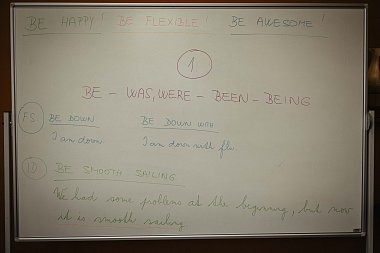 BE HAPPY! BE FLEXIBLE! BE AWESOME!
1
BE - WAS, WERE - BEEN - BEING
FS BE DOWN BE DOWN WITH
I am down I am down with flu.
ID BE SMOOTH SAILING
We had some problems at the beginning, but now
it is smooth sailing.